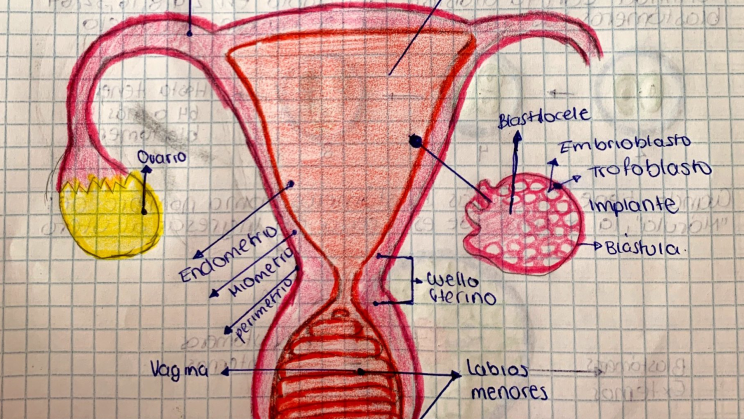 Ovario
Blastocele
Embrioblasto
Trofoblasto
Implante
Blástula.
Endometrio
Miometrio
perimetrio
Cuello
Uterino
Vagina
Labios
menores